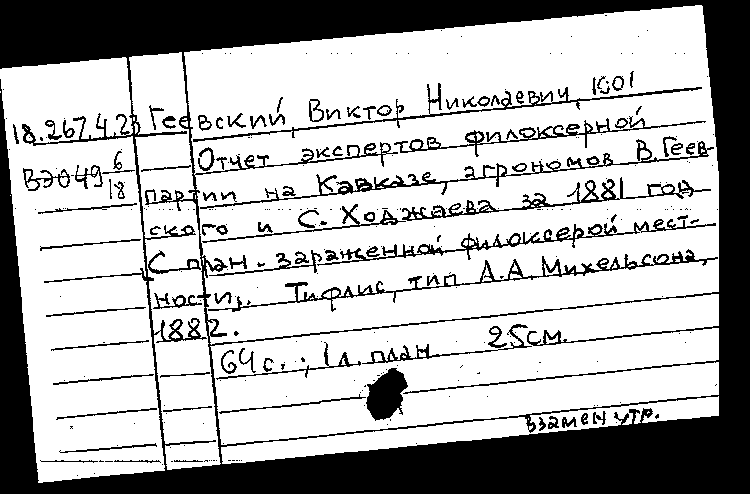 18.267.4.23 Геевский, Виктор Николаевич,
Отчет экспертов филоксерной
партии на Кавказе, агрономов В. Геев-
ского и С. Ходжаева за 1881 год
С план. зараженной филоксерой мест-
ности. Тифлис, тип А.А. Михельсона,
1882.
64 с.; 1 л. план 25 см.
взамен утр.